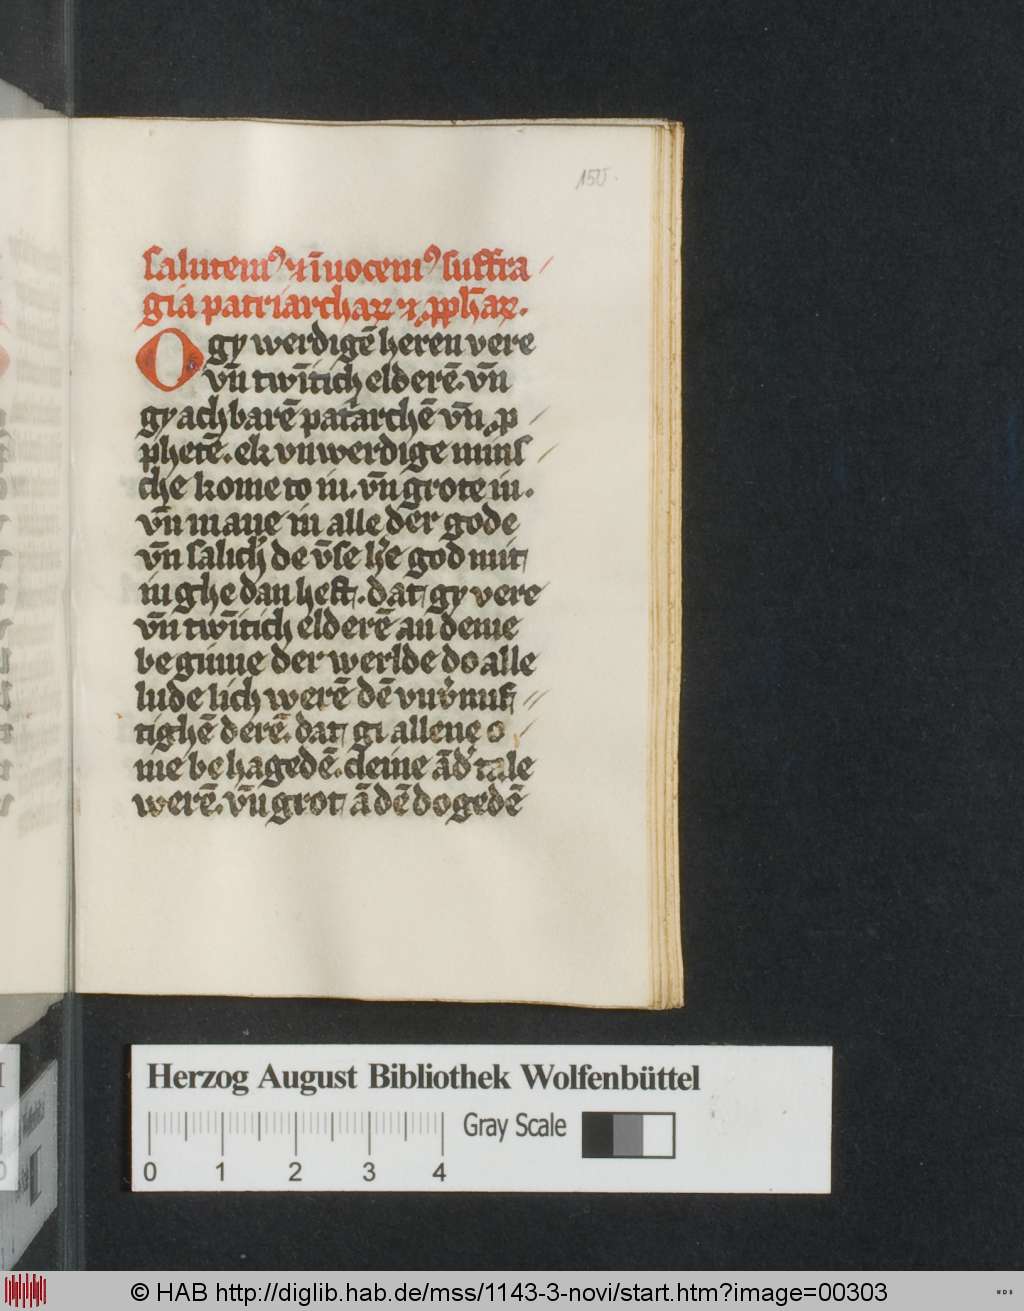 150.
salutemꝰ ⁊ īuocemꝰ suffra
gia patriarchaꝝ ⁊ ꝓph̄aꝝ.
O gy werdigē heren vere
vn̄ twītich elderē. vn̄
gy achbarē pat̄archē vn̄ ꝓ
phetē. ek vnwerdige mins
che kome to iu. vn̄ grote iu.
vn̄ maue iu alle der gode
vn̄ salich̾ de v̄se h̾e god mit
iu ghe dan heft. dat gy vere
vn̄ twītich elderē an deme
beginne der werlde do alle
lude lich werē dē vnv̾nuf
tighē derē. dat gi allene o
me behagedē. cleine ād̾ tale
werē. vn̄ grot ā dē dogedē
Herzog August Bibliothek Wolfenbüttel
Gray Scale
0 1 2 3 4
© HAB http://diglib.hab.de/mss/1143-3-novi/start.htm?image=00303